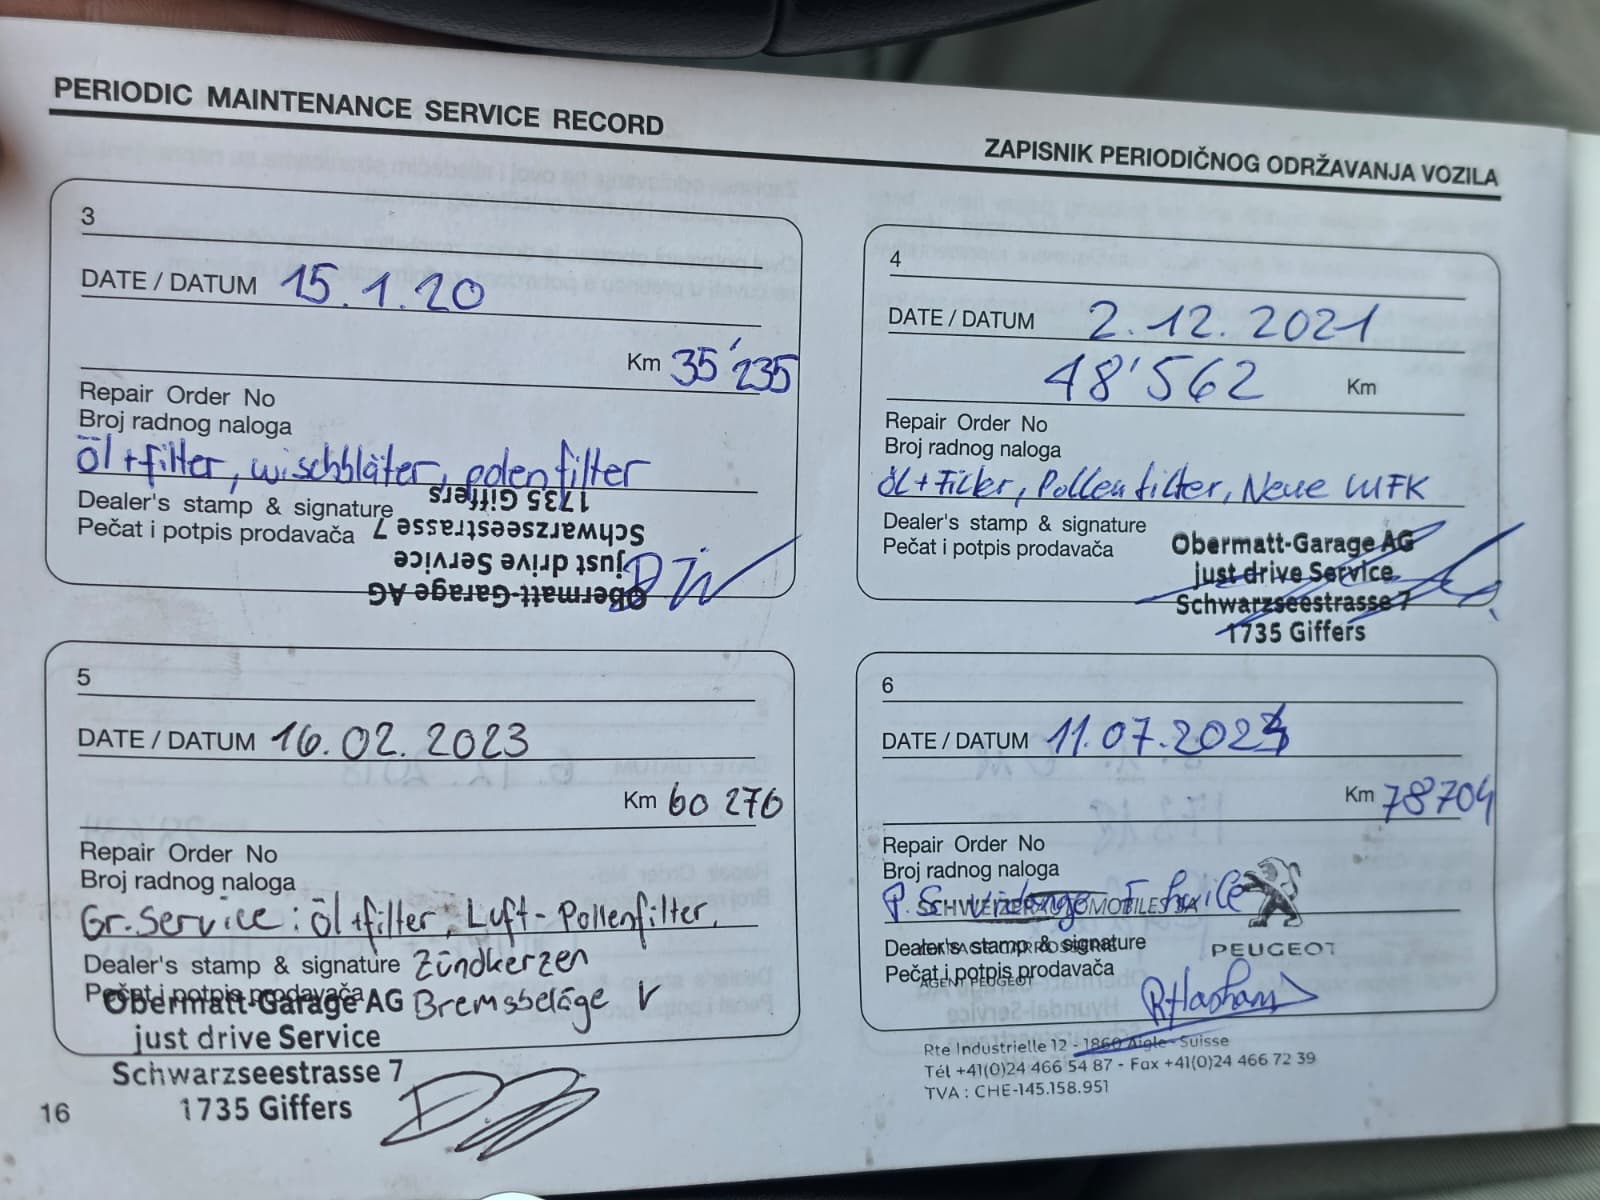 PERIODIC MAINTENANCE SERVICE RECORD
ZAPISNIK PERIODIČNOG ODRŽAVANJA VOZILA
3
DATE / DATUM 15.1.20
Km 35'235
Repair Order No
Broj radnog naloga
öl + filter, wischbläter, polenfilter
Dealer's stamp & signature
Pečat i potpis prodavača
Obermatt-Garage AG
just drive Service
Schwarzseestrasse 7
1735 Giffers
4
DATE / DATUM 2.12.2021
48'562 Km
Repair Order No
Broj radnog naloga
öl + Filter, Pollenfilter, Neue MFK
Dealer's stamp & signature
Pečat i potpis prodavača
Obermatt-Garage AG
just drive Service
Schwarzseestrasse 7
1735 Giffers
5
DATE / DATUM 16.02.2023
Km 60 276
Repair Order No
Broj radnog naloga
Gr. Service: Öl + filter, Luft-Pollenfilter,
Dealer's stamp & signature Zündkerzen
Pečat i potpis prodavača
Obermatt-Garage AG Bremsbeläge V
just drive Service
Schwarzseestrasse 7
1735 Giffers
6
DATE / DATUM 11.07.202
Km 78704
Repair Order No
Broj radnog naloga
SCHWEIZER AUTOMOBILES SA
Dealer's stamp & signature
PEUGEOT
Pečat i potpis prodavača
AGENT PEUGEOT
Rte Industrielle 12 - 1860 Aigle - Suisse
Tél +41(0)24 466 54 87 - Fax +41(0)24 466 72 39
TVA : CHE-145.158.951
16